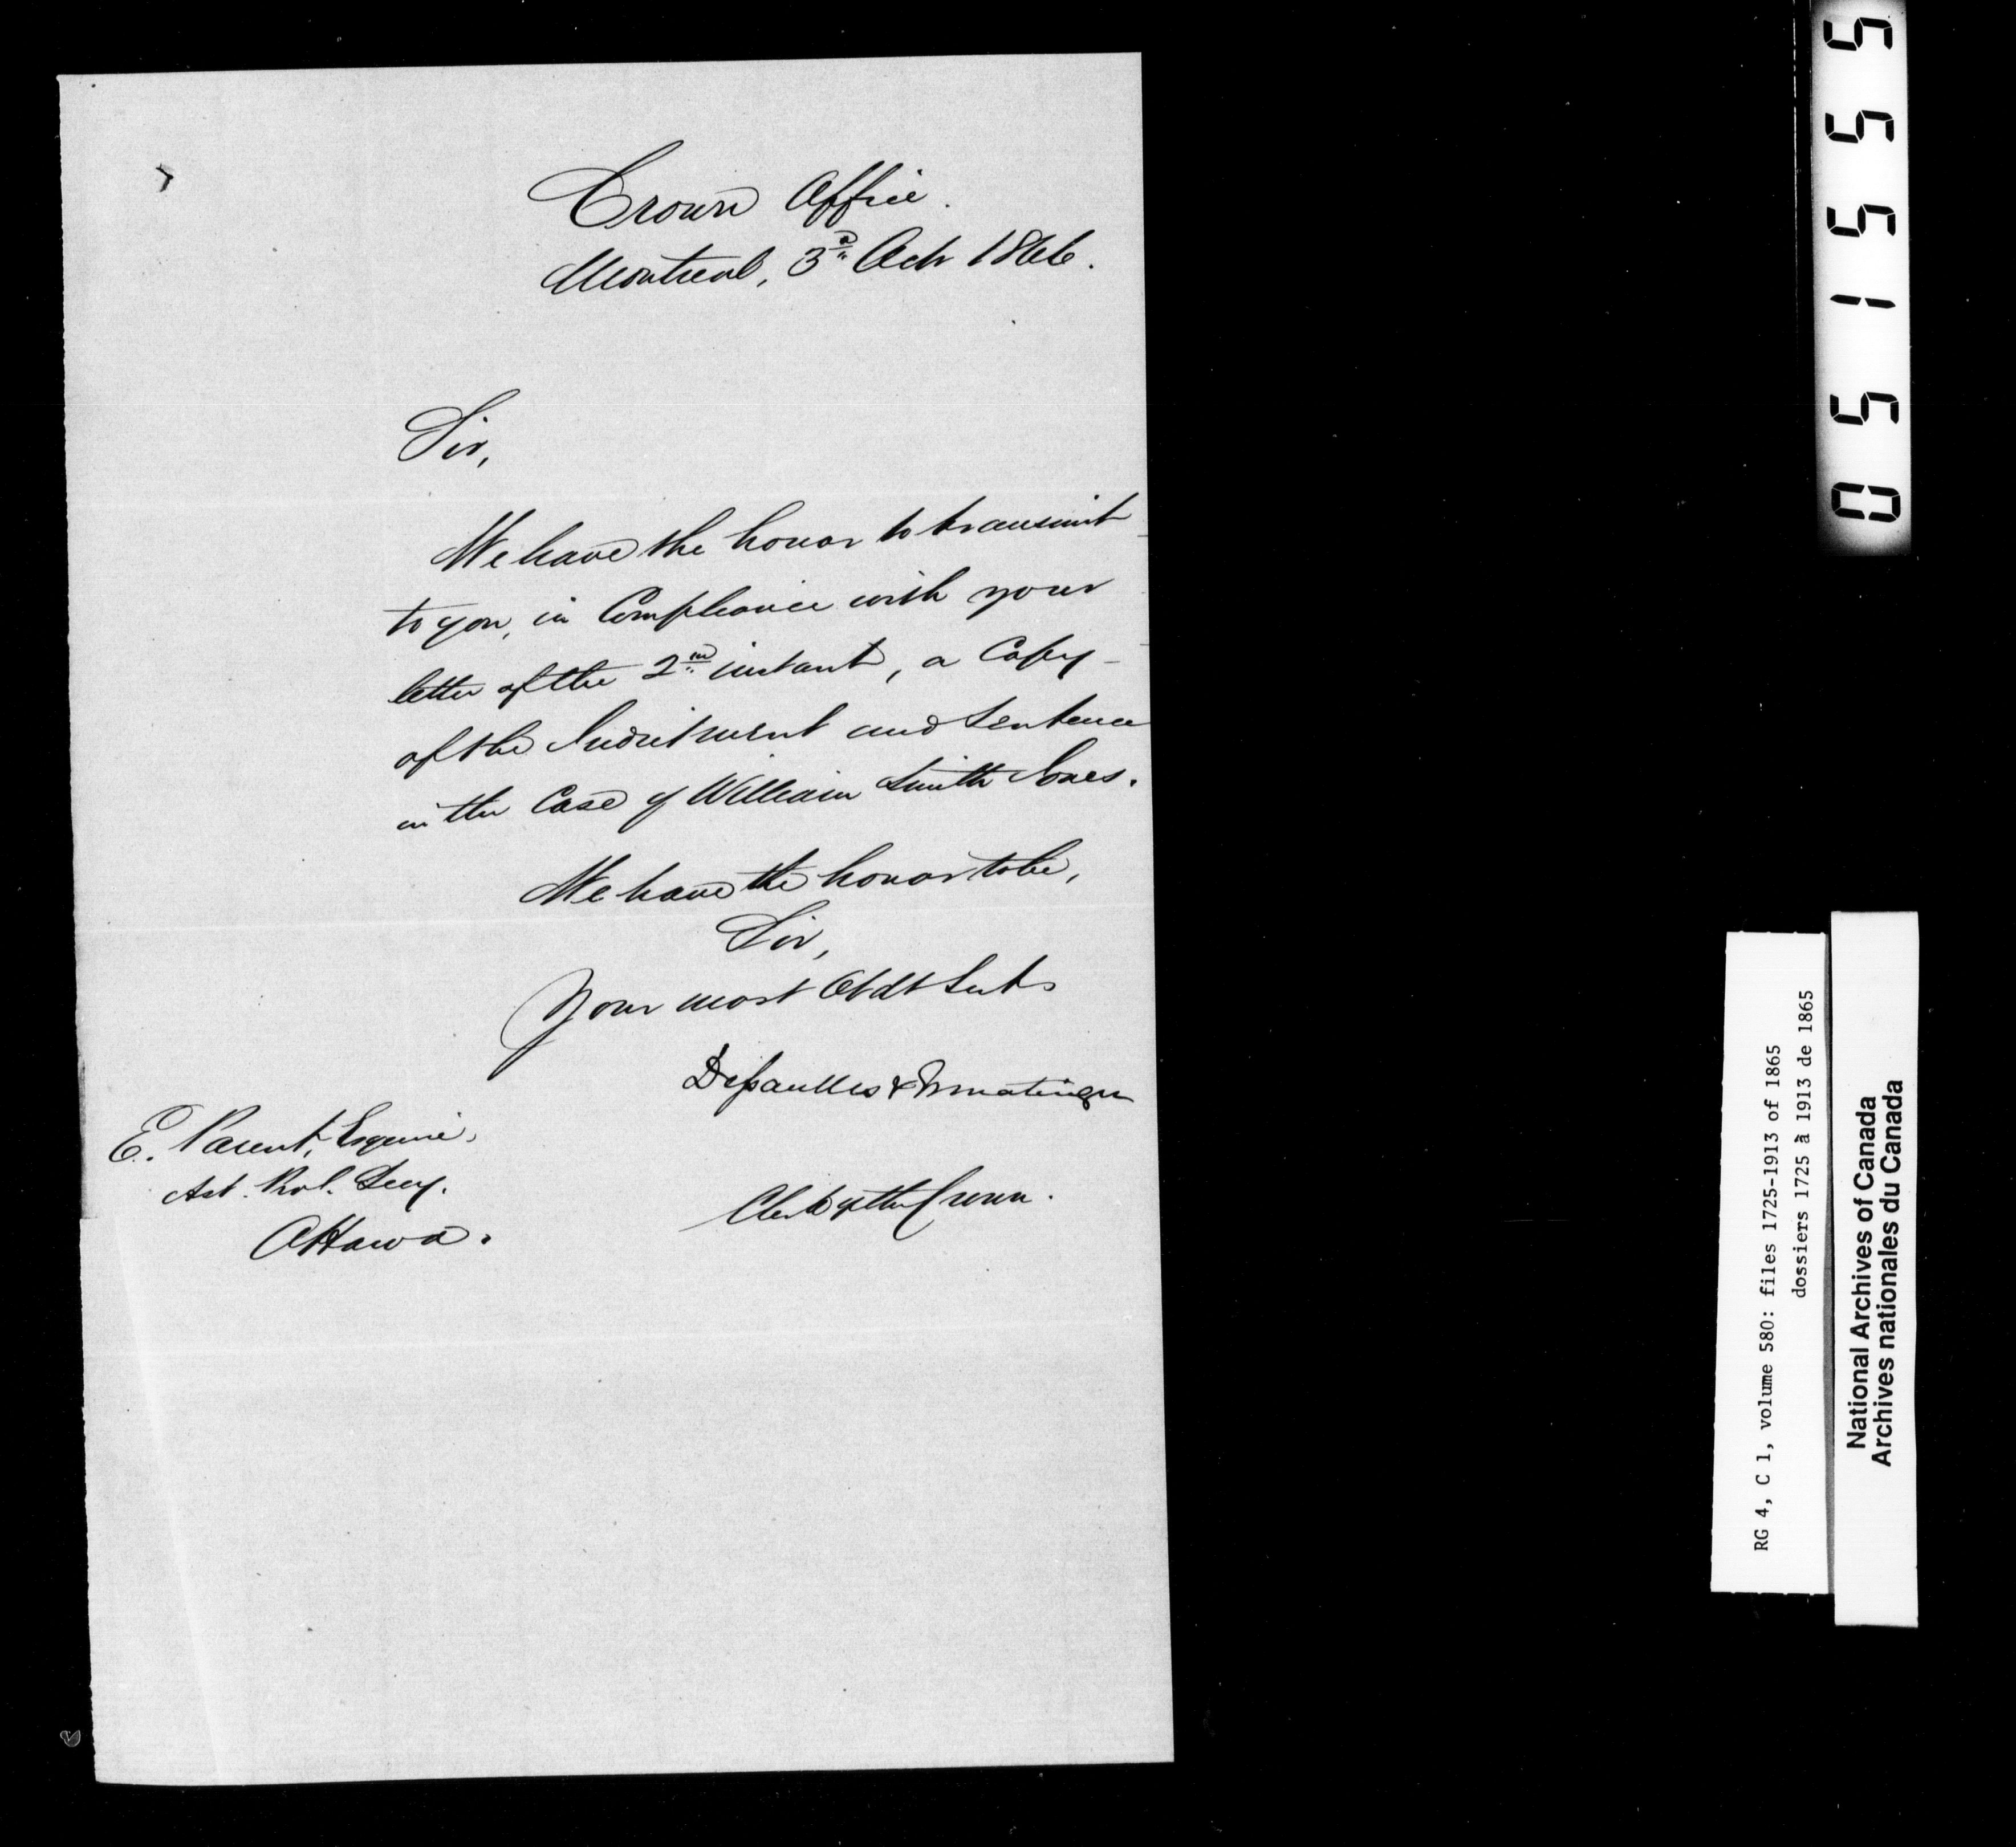 Crown Office.
Montreal, 3rd Octr 1866.
Sir,
We have the honor to transmit
to you, in Compliance with your
letter of the 2nd instant, a Copy
of the Indictment and Sentence
in the Case of William Smith Jones.
We have the honor to be,
Sir,
Your most Obdt Servts
Dessaulles & Ermatinger
Clerk of the Crown.
E. Parent, Esquire,
Ast. Prol. Secy.
Ottawa.
051555
RG 4, C 1, volume 580: files 1725-1913 of 1865
dossiers 1725 à 1913 de 1865
National Archives of Canada
Archives nationales du Canada